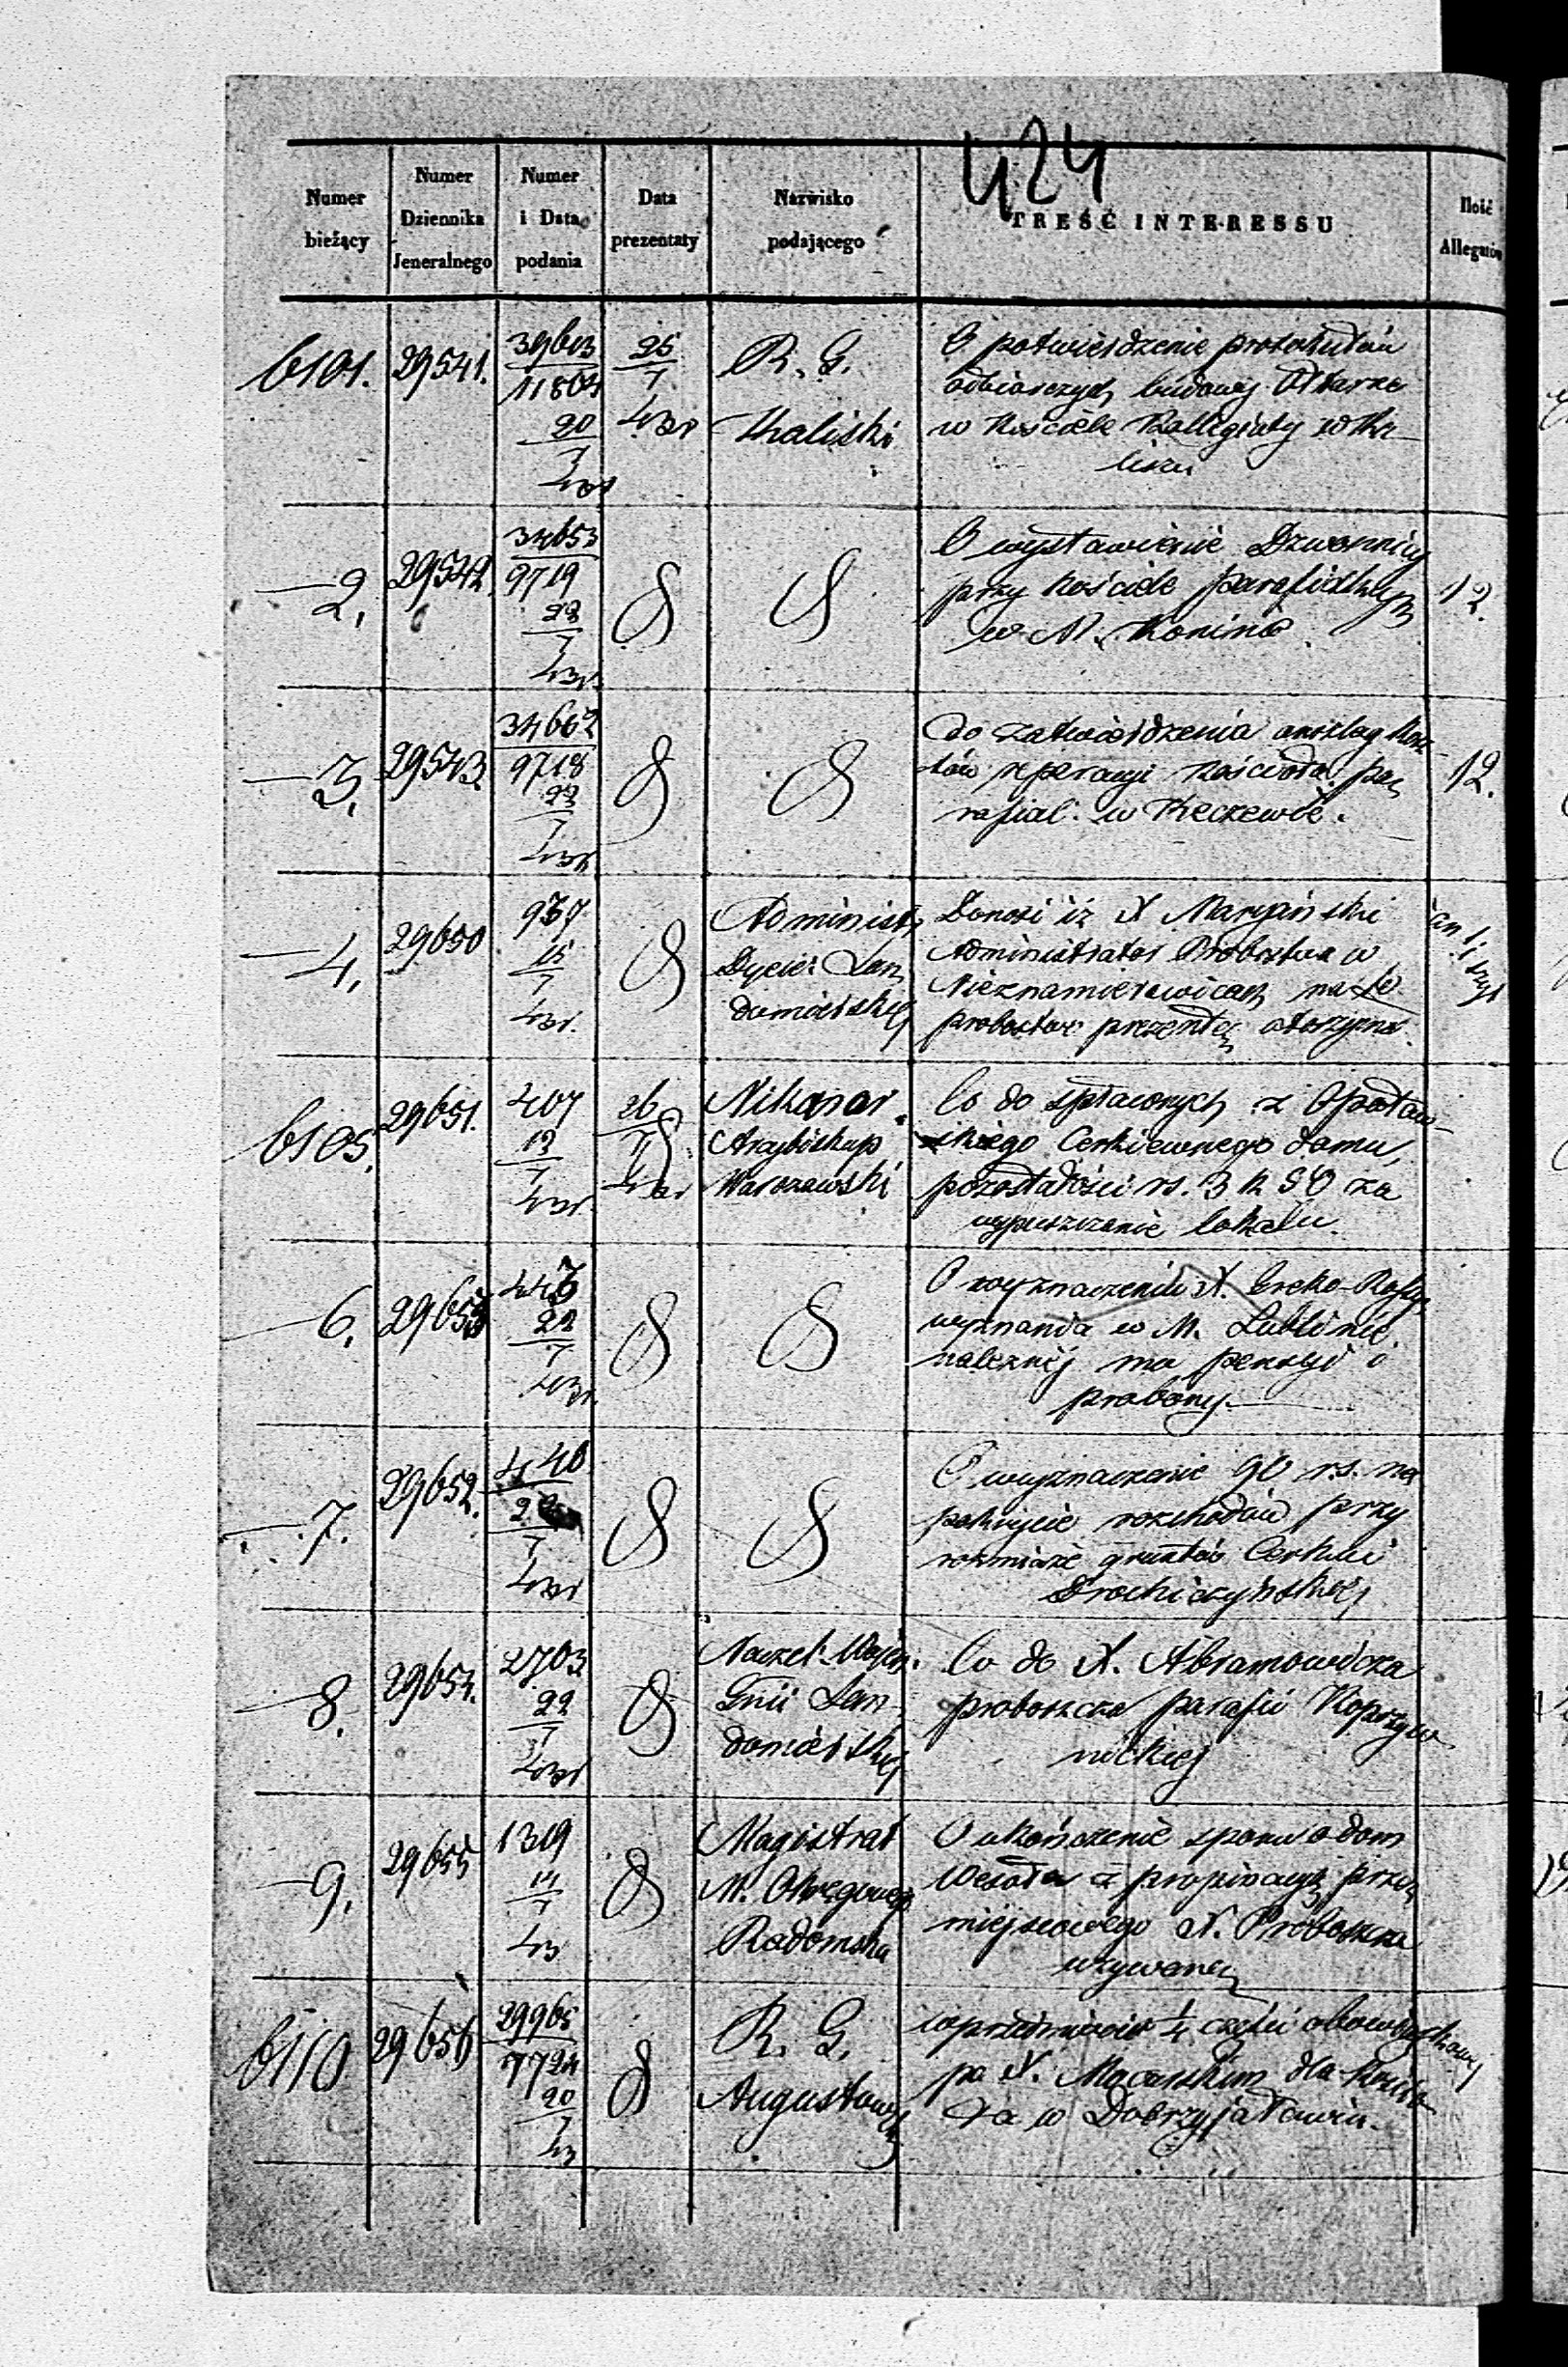 424
Numer bieżący
Numer Dziennika Jeneralnego
Numer i Data podania
Data prezentaty
Nazwisko podającego
TREŚĆ INTERESSU
Ilość Allegatów
6101. 29541. 11804 20/7 25/7 R. G. Kaliski
O potwierdzenie protokułów
odbiorczych budowy Ołtarza
w Kościele Kollegiaty w Ka-
liszu
2. 29542. 34653 9719 22/7
O wystawienie Dzwonnicy
przy kościele parafialnym
w M. Koninie.
12.
3. 29543. 34662 9718 22/7
do zatwierdzenia anszlag kosz-
tów reperacyi kościoła pa-
rafial. w Kleczewie.
12.
4. 29650 937 15/7
Administ.
Dyecez San
domierskiej
Donosi iż X Maryański
Administrator Probostwa w
Nieznamierowicach na to
probostwo prezentę otrzymał.
6105. 29651. 407 13/7 26/7
Nikanor
Arcybiskup
Warszawski
Co do spłaconych z Opatow-
skiego Cerkiewnego domu,
pozostałości rs. 3 k 90 za
wypuszczenie lokalu.
6. 29653 22/7
O wyznaczeniu X. Greko-Rossyj
wyznania w M. Lublinie
należnéj ma pensyi i
probony.
7. 29652. 440
O wyznaczenie 90 rs. na
pokrycie rozchodów przy
rozmiarze gruntów Cerkwi
Drohiczyńskiej
8. 29654. 2703 22/7
Naczel. Wojen.
Gnii San
domierskiej
Co do X. Abramowicza
proboszcza parafii Koprzyw
nickiej
9. 29655 1319 14/7
Magistrat
M. Okręgowego
Radomska
O ukończenie sporu o dom
Wesoła z propinacyą przez
miejscowego X. Proboszcza
używaną
6110 29656 29965 7724 20/7
R. G.
Augustows.
w przedmiocie 1/4 części obowiązkowej
po X. Mocarskim dla Kościo
ła w Dobrzyjałowiu.